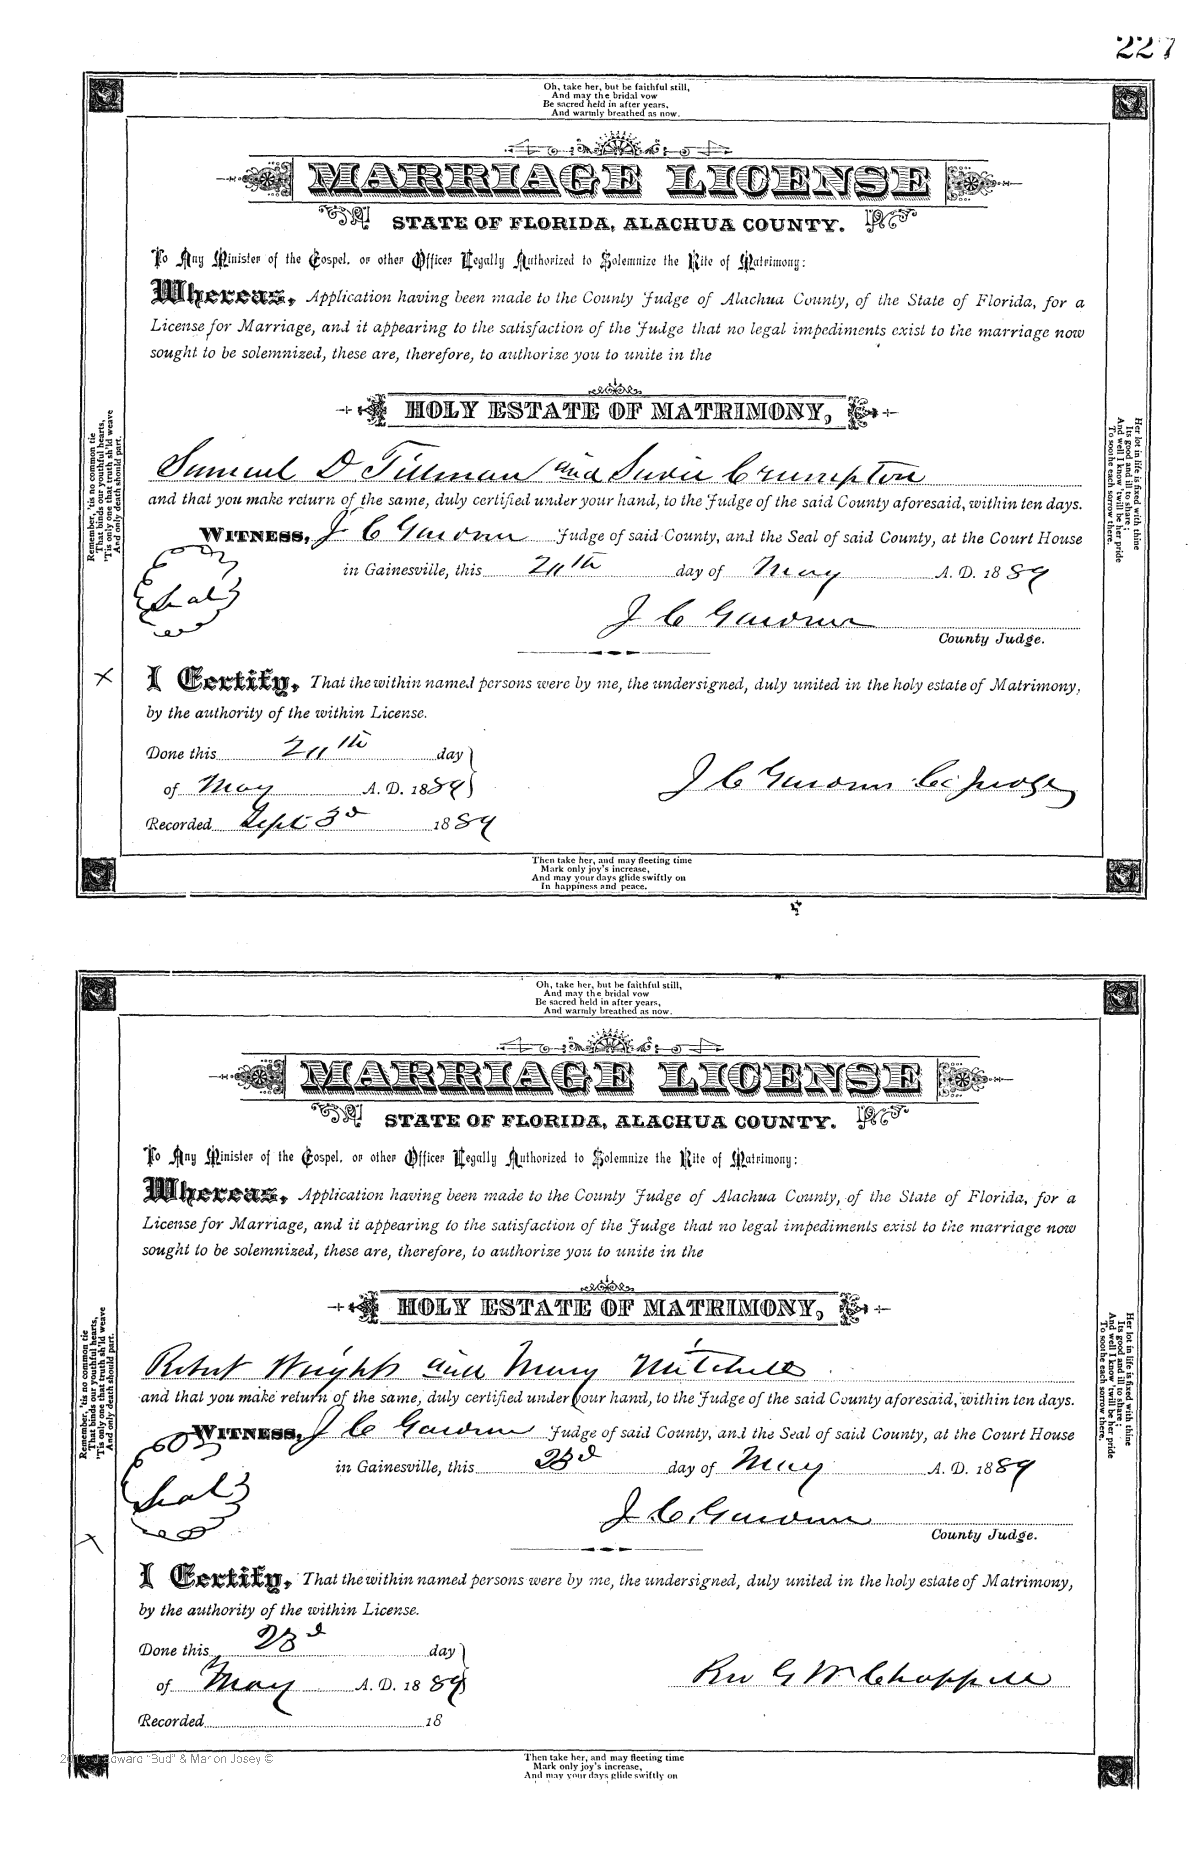 227
Oh, take her, but be faithful still,
And may the bridal vow
Be sacred held in after years,
And warmly breathed as now.
MARRIAGE LICENSE
STATE OF FLORIDA, ALACHUA COUNTY.
To Any Minister of the Gospel, or other Officer Legally Authorized to Solemnize the Rite of Matrimony:
Whereas, Application having been made to the County Judge of Alachua County, of the State of Florida, for a
License for Marriage, and it appearing to the satisfaction of the Judge that no legal impediments exist to the marriage now
sought to be solemnized, these are, therefore, to authorize you to unite in the
HOLY ESTATE OF MATRIMONY,
Samuel D Tillman and Susie Crumpton
and that you make return of the same, duly certified under your hand, to the Judge of the said County aforesaid, within ten days.
WITNESS, J C Gardner Judge of said County, and the Seal of said County, at the Court House
in Gainesville, this 24th day of May A. D. 1889
Seal
J C Gardner
County Judge.
X
I Certify, That the within named persons were by me, the undersigned, duly united in the holy estate of Matrimony,
by the authority of the within License.
Done this 24th day
of May A. D. 1889
J C Gardner Co Judge
Recorded Sept 3d 1889
Remember, 'tis no common tie
That binds our youthful hearts,
'Tis only one that truth sh'ld weave
And only death should part.
Her lot in life is fixed with thine
Its good and ill to share;
And well I know 'twill be her pride
To soothe each sorrow there.
Then take her, and may fleeting time
Mark only joy's increase,
And may your days glide swiftly on
In happiness and peace.
Oh, take her, but be faithful still,
And may the bridal vow
Be sacred held in after years,
And warmly breathed as now.
MARRIAGE LICENSE
STATE OF FLORIDA, ALACHUA COUNTY.
To Any Minister of the Gospel, or other Officer Legally Authorized to Solemnize the Rite of Matrimony:
Whereas, Application having been made to the County Judge of Alachua County, of the State of Florida, for a
License for Marriage, and it appearing to the satisfaction of the Judge that no legal impediments exist to the marriage now
sought to be solemnized, these are, therefore, to authorize you to unite in the
HOLY ESTATE OF MATRIMONY,
Robert Wright and Mary Mitchell
and that you make return of the same, duly certified under your hand, to the Judge of the said County aforesaid, within ten days.
WITNESS, J C Gardner Judge of said County, and the Seal of said County, at the Court House
in Gainesville, this 23d day of May A. D. 1889
Seal
J. C. Gardner
County Judge.
X
I Certify, That the within named persons were by me, the undersigned, duly united in the holy estate of Matrimony,
by the authority of the within License.
Done this 23d day
of May A. D. 1889
Rev G W Chappell
Recorded 18
Remember, 'tis no common tie
That binds our youthful hearts,
'Tis only one that truth sh'ld weave
And only death should part.
Her lot in life is fixed with thine
Its good and ill to share;
And well I know 'twill be her pride
To soothe each sorrow there.
Edward "Bud" & Marion Josey ©
Then take her, and may fleeting time
Mark only joy's increase,
And may your days glide swiftly on